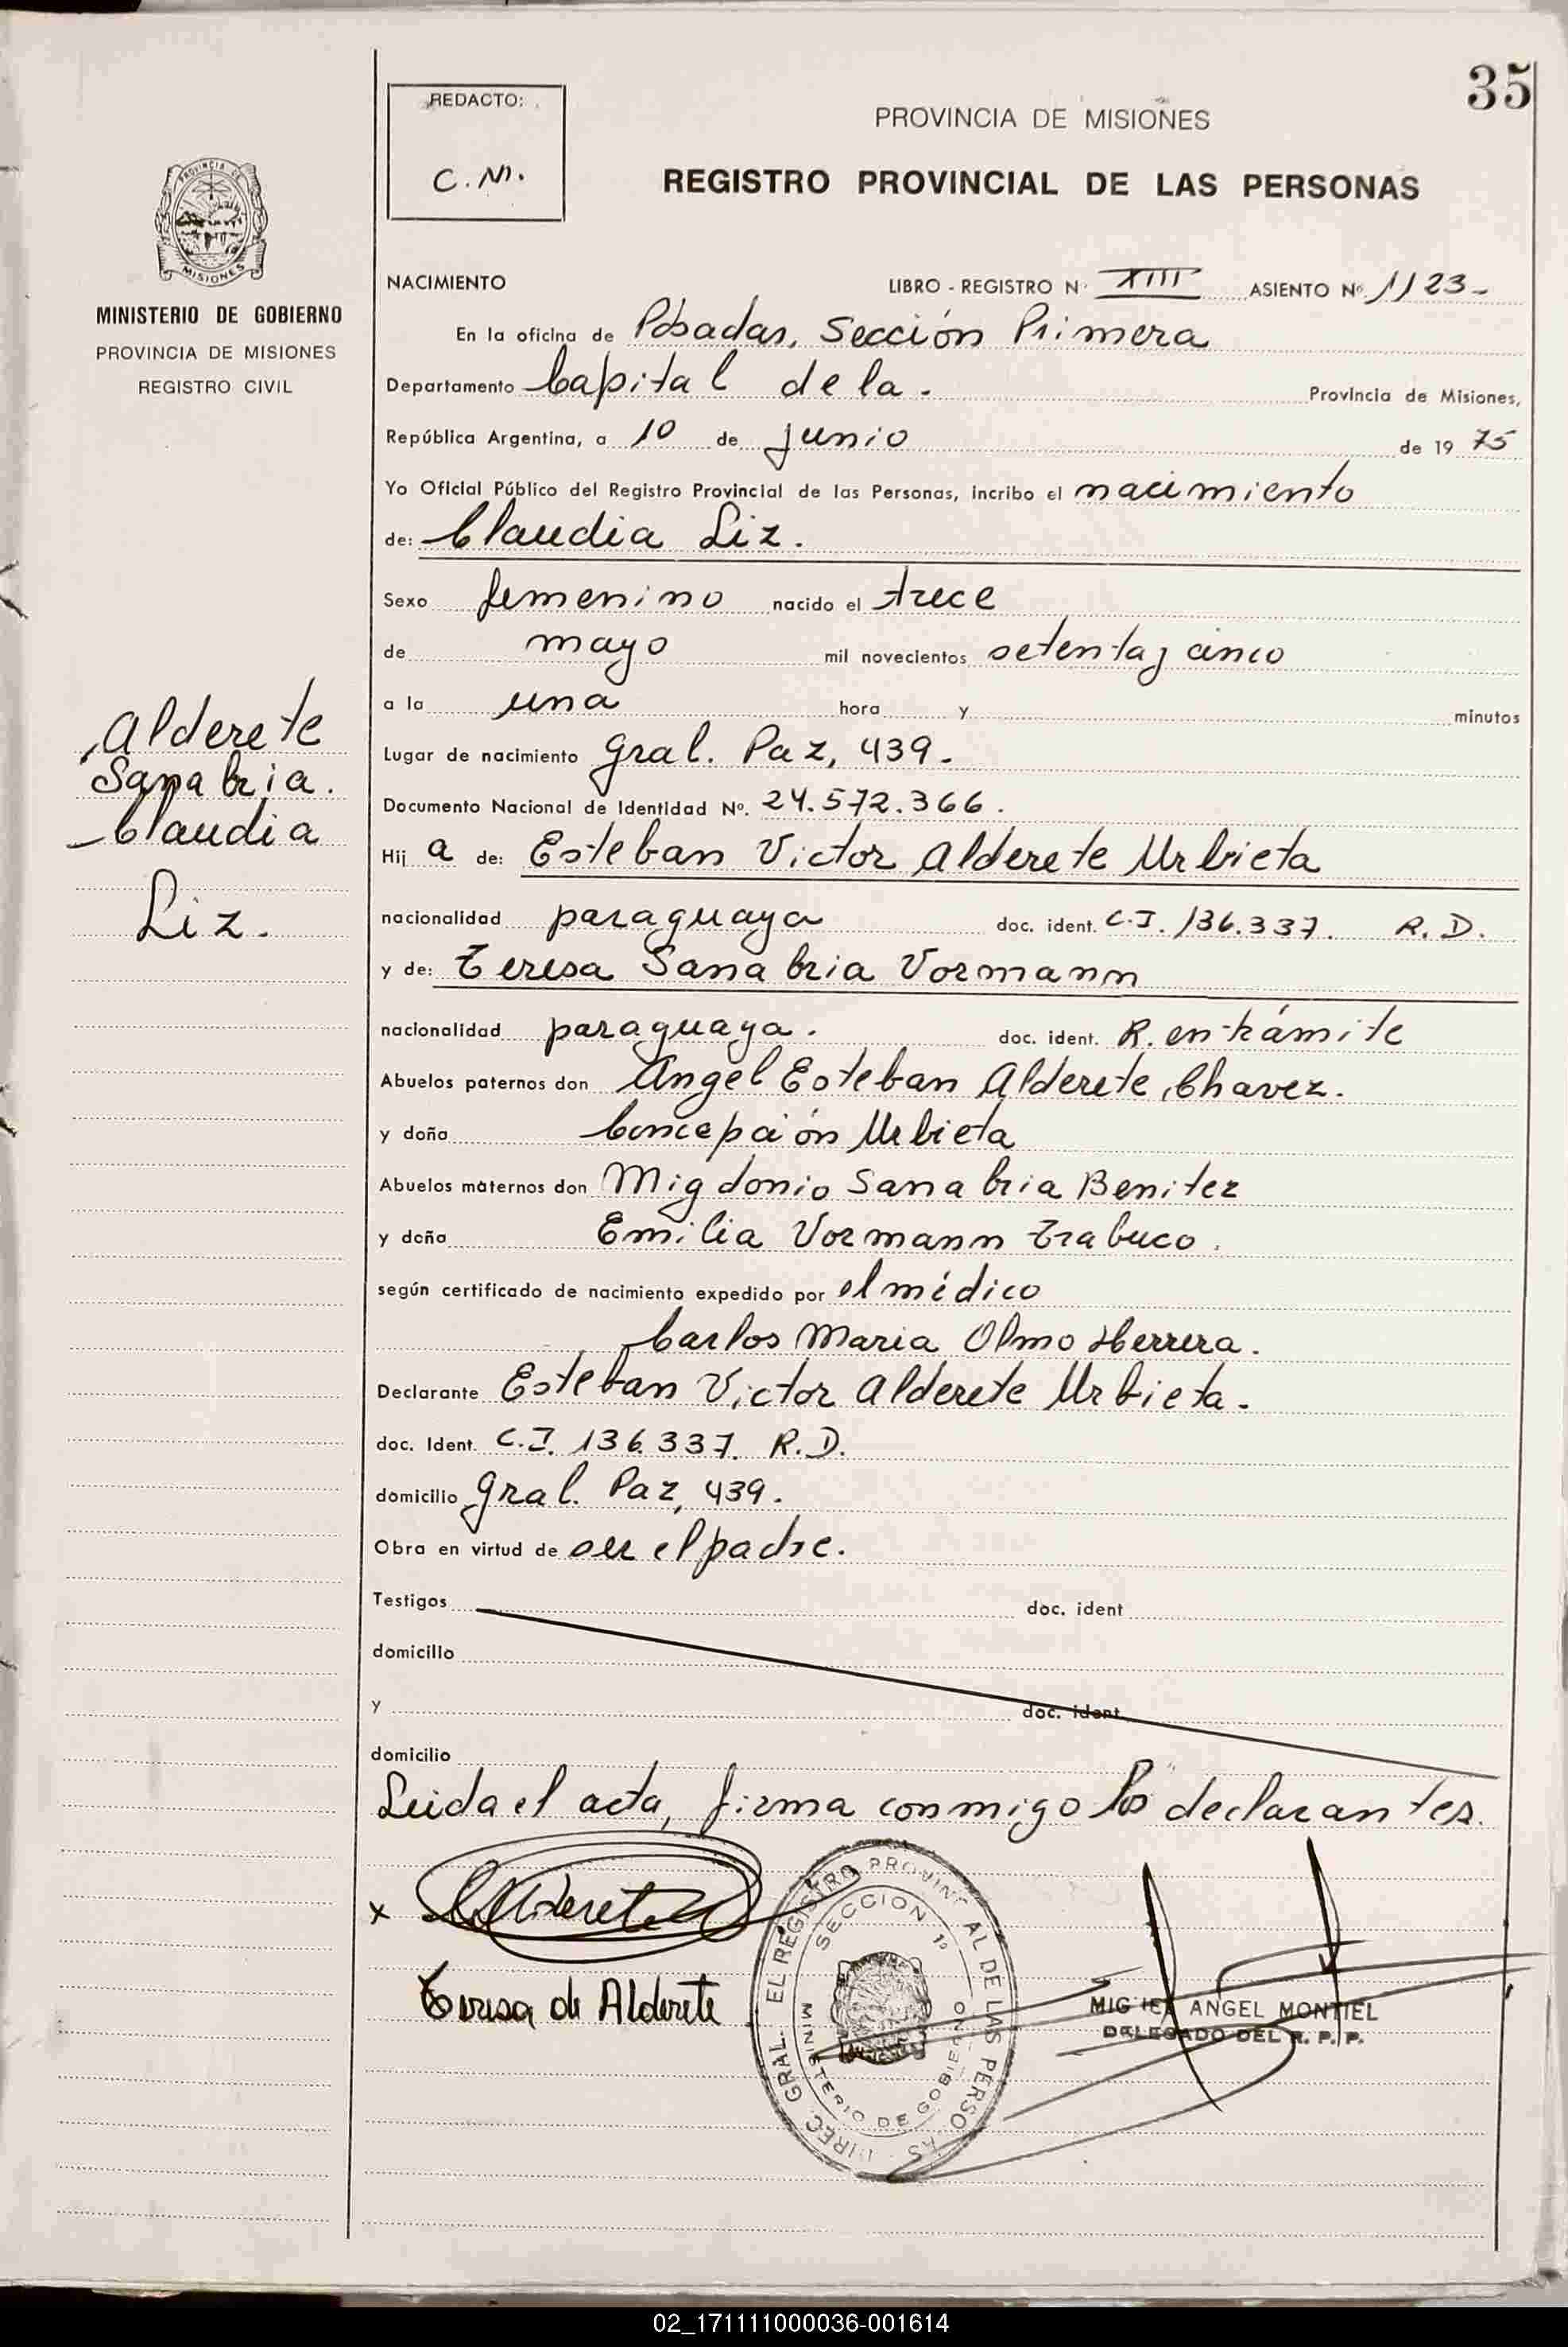 35
REDACTO:
C. M.
PROVINCIA DE MISIONES
REGISTRO PROVINCIAL DE LAS PERSONAS
PROVINCIA DE
MISIONES
MINISTERIO DE GOBIERNO
PROVINCIA DE MISIONES
REGISTRO CIVIL
Alderete
Sanabria.
Claudia
Liz.
NACIMIENTO LIBRO - REGISTRO N· XIII ASIENTO Nº 1123-
En la oficina de Posadas, Sección Primera
Departamento Capital de la. Provincia de Misiones,
República Argentina, a 10 de junio de 19 75
Yo Oficial Público del Registro Provincial de las Personas, incribo el nacimiento
de: Claudia Liz.
Sexo femenino nacido el trece
de mayo mil novecientos setenta y cinco
a la una hora y minutos
Lugar de nacimiento Gral. Paz, 439.
Documento Nacional de Identidad Nº. 24.572.366.
Hij a de: Esteban Victor Alderete Urbieta
nacionalidad paraguaya doc. ident. C.I. 136.337. R.D.
y de: Teresa Sanabria Vormann
nacionalidad paraguaya. doc. ident. R. en trámite
Abuelos paternos don Angel Esteban Alderete Chavez.
y doña Concepción Urbieta
Abuelos maternos don Migdonio Sanabria Benitez
y doña Emilia Vormann Trabuco.
según certificado de nacimiento expedido por el médico
Carlos Maria Olmo Herrera.
Declarante Esteban Victor Alderete Urbieta.
doc. Ident. C.I. 136.337. R.D.
domicilio Gral. Paz, 439.
Obra en virtud de ser el padre.
Testigos doc. ident
domicilio
y doc. ident
domicilio
Leida el acta, firma conmigo los declarantes.
x Alderete
Teresa de Alderete
DIREC. GRAL. EL REGISTRO PROVINCIAL DE LAS PERSONAS
SECCION 1ª
MINISTERIO DE GOBIERNO
MIGUEL ANGEL MONTIEL
DELEGADO DEL R. P. P.
02_171111000036-001614